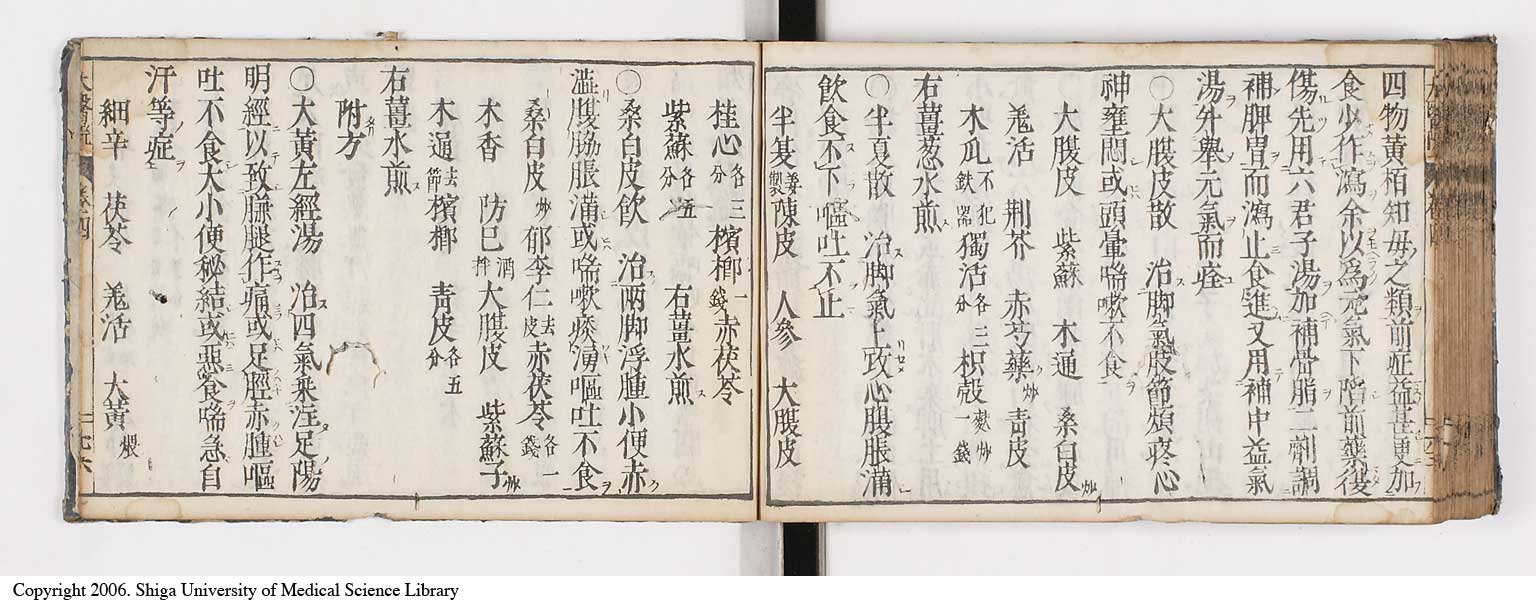 四物黄栢知母之類前症益甚更加
食少作瀉余以為元氣下陷前藥復
傷先用六君子湯加補骨脂二劑調
補脾胃而瀉止食進又用補中益氣
湯外舉元氣而痊
〇大腹皮散 治脚氣肢節煩疼心
神壅悶或頭暈喘嗽不食
大腹皮 紫蘇 木通 桑白皮炒
羗活 荆芥 赤芍藥炒 青皮
木瓜不犯鉄器 獨活各三分 枳殻麩炒一錢
右薑葱水煎
〇半夏散 治脚氣上攻心腹脹滿
飲食不下嘔吐不止
半夏姜製 陳皮 人參 大腹皮
桂心各三分 檳榔一錢 赤茯苓
紫蘇各五分 右薑水煎
〇桑白皮飲 治兩脚浮腫小便赤
澁腹脇脹滿或喘嗽痰湧嘔吐不食
桑白皮炒 郁李仁去皮 赤茯苓各一錢
木香 防巳酒拌 大腹皮 紫蘇子炒
木通去節 檳榔 青皮各五分
右薑水煎
附方
〇大黄左經湯 治四氣乘注足陽
明經以致腰腿作痛或足脛赤腫嘔
吐不食大小便秘結或惡食喘急自
汗等症
細辛 茯苓 羗活 大黄煨
Copyright 2006. Shiga University of Medical Science Library